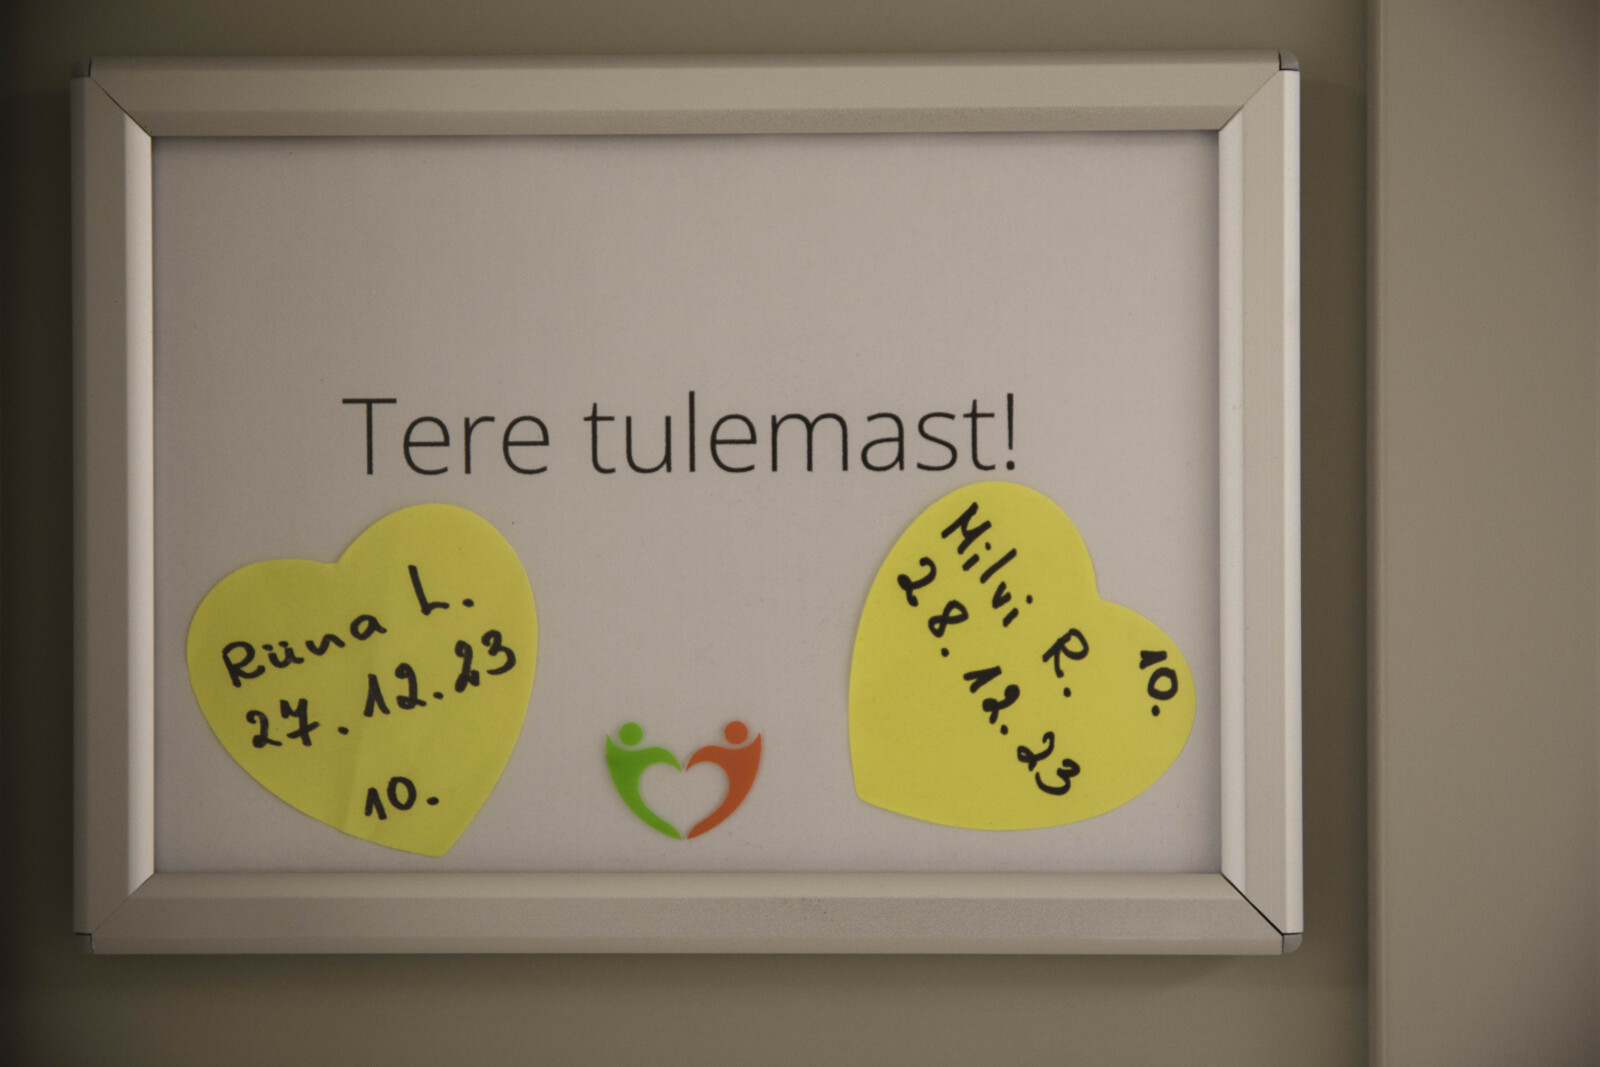 Tere tulemast!
Riina L.
27.12.23
10.
Milvi R.
28.12.23
10.